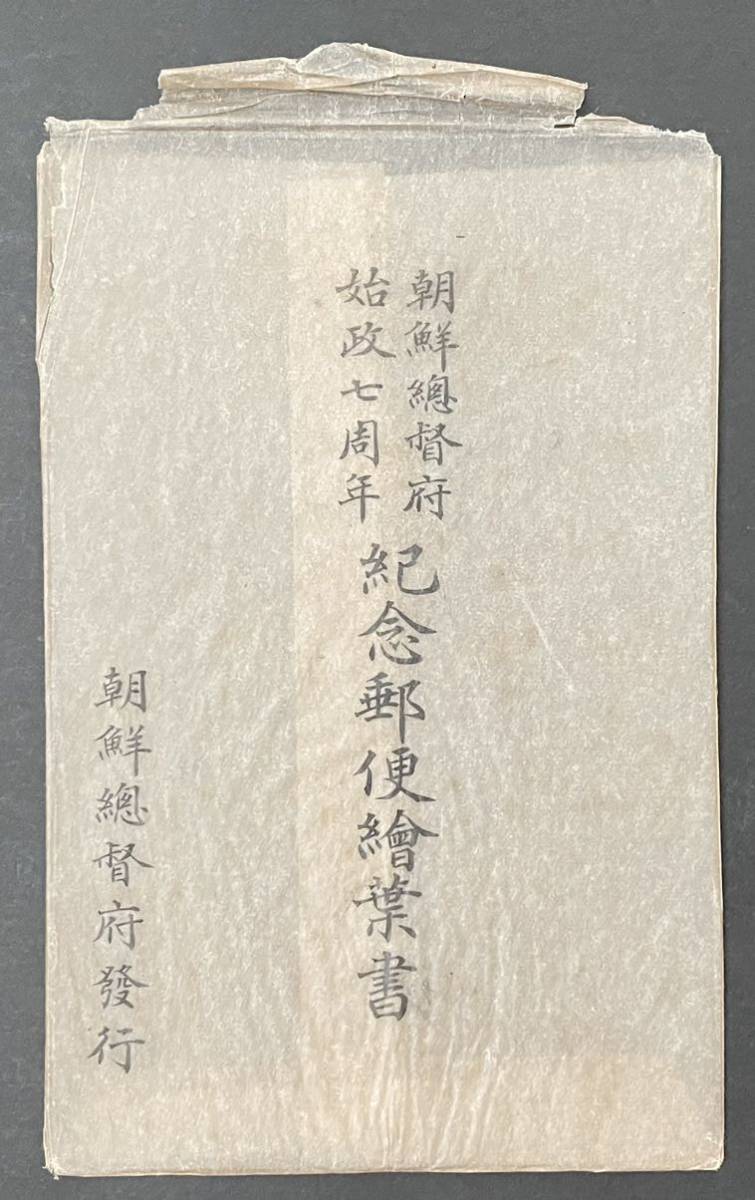 朝鮮總督府
始政七周年
紀念郵便繪葉書
朝鮮總督府發行